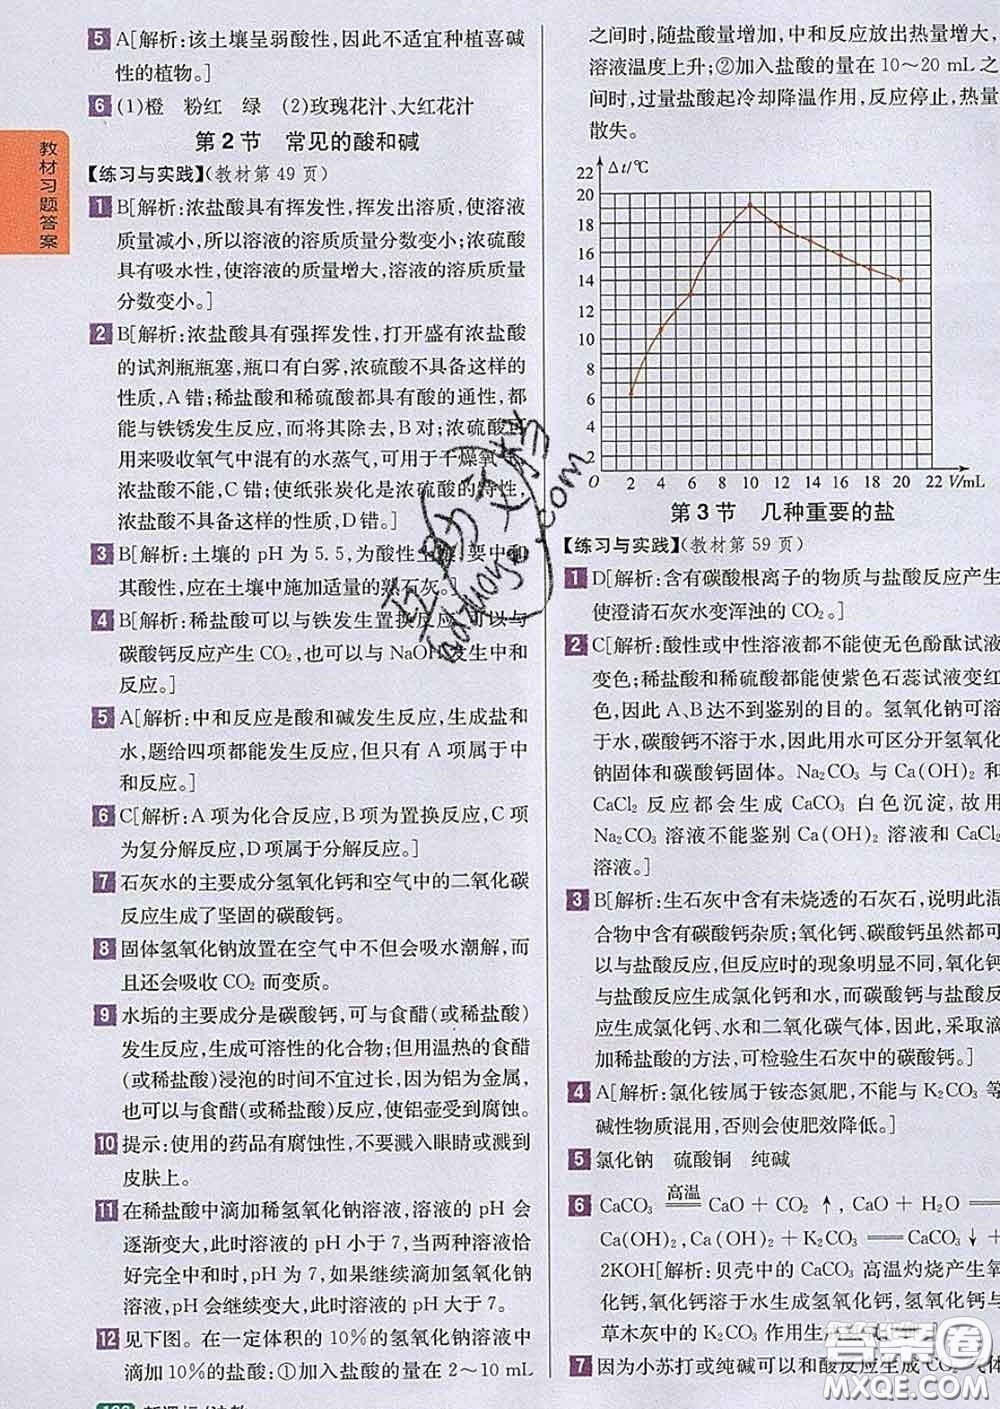 教材习题答案
5 A[解析:该土壤呈弱酸性,因此不适宜种植喜碱
性的植物。]
6 (1)橙 粉红 绿 (2)玫瑰花汁、大红花汁
第2节 常见的酸和碱
【练习与实践】(教材第49页)
1 B[解析:浓盐酸具有挥发性,挥发出溶质,使溶液
质量减小,所以溶液的溶质质量分数变小;浓硫酸
具有吸水性,使溶液的质量增大,溶液的溶质质量
分数变小。]
2 B[解析:浓盐酸具有强挥发性,打开盛有浓盐酸
的试剂瓶瓶塞,瓶口有白雾,浓硫酸不具备这样的
性质,A错;稀盐酸和稀硫酸都具有酸的通性,都
能与铁锈发生反应,而将其除去,B对;浓硫酸可
用来吸收氧气中混有的水蒸气,可用于干燥氧气,
浓盐酸不能,C错;使纸张炭化是浓硫酸的特性,
浓盐酸不具备这样的性质,D错。]
3 B[解析:土壤的pH为5.5,为酸性土壤,要中和
其酸性,应在土壤中施加适量的熟石灰。]
4 B[解析:稀盐酸可以与铁发生置换反应,可以与
碳酸钙反应产生CO₂,也可以与NaOH发生中和
反应。]
5 A[解析:中和反应是酸和碱发生反应,生成盐和
水,题给四项都能发生反应,但只有A项属于中
和反应。]
6 C[解析:A项为化合反应,B项为置换反应,C项
为复分解反应,D项属于分解反应。]
7 石灰水的主要成分氢氧化钙和空气中的二氧化碳
反应生成了坚固的碳酸钙。
8 固体氢氧化钠放置在空气中不但会吸水潮解,而
且还会吸收CO₂而变质。
9 水垢的主要成分是碳酸钙,可与食醋(或稀盐酸)
发生反应,生成可溶性的化合物;但用温热的食醋
(或稀盐酸)浸泡的时间不宜过长,因为铝为金属,
也可以与食醋(或稀盐酸)反应,使铝壶受到腐蚀。
10 提示:使用的药品有腐蚀性,不要溅入眼睛或溅到
皮肤上。
11 在稀盐酸中滴加稀氢氧化钠溶液,溶液的pH会
逐渐变大,此时溶液的pH小于7,当两种溶液恰
好完全中和时,pH为7,如果继续滴加氢氧化钠
溶液,pH会继续变大,此时溶液的pH大于7。
12 见下图。在一定体积的10%的氢氧化钠溶液中
滴加10%的盐酸:①加入盐酸的量在2~10 mL
之间时,随盐酸量增加,中和反应放出热量增大,
溶液温度上升;②加入盐酸的量在10~20 mL之
间时,过量盐酸起冷却降温作用,反应停止,热量
散失。
22 Δt/℃
20
18
16
14
12
10
8
6
4
2
O 2 4 6 8 10 12 14 16 18 20 22 V/mL
第3节 几种重要的盐
【练习与实践】(教材第59页)
1 D[解析:含有碳酸根离子的物质与盐酸反应产生
使澄清石灰水变浑浊的CO₂。]
2 C[解析:酸性或中性溶液都不能使无色酚酞试液
变色;稀盐酸和稀硫酸都能使紫色石蕊试液变红
色,因此A、B达不到鉴别的目的。氢氧化钠可溶
于水,碳酸钙不溶于水,因此用水可区分开氢氧化
钠固体和碳酸钙固体。Na₂CO₃与Ca(OH)₂和
CaCl₂反应都会生成CaCO₃白色沉淀,故用
Na₂CO₃溶液不能鉴别Ca(OH)₂溶液和CaCl₂
溶液。]
3 B[解析:生石灰中含有未烧透的石灰石,说明此混
合物中含有碳酸钙杂质;氧化钙、碳酸钙虽然都可
以与盐酸反应,但反应时的现象明显不同,氧化钙
与盐酸反应生成氯化钙和水,而碳酸钙与盐酸反
应生成氯化钙、水和二氧化碳气体,因此,采取滴
加稀盐酸的方法,可检验生石灰中的碳酸钙。]
4 A[解析:氯化铵属于铵态氮肥,不能与K₂CO₃等
碱性物质混用,否则会使肥效降低。]
5 氯化钠 硫酸铜 纯碱
6 CaCO₃ =高温= CaO + CO₂↑, CaO + H₂O ══
Ca(OH)₂, Ca(OH)₂ + K₂CO₃ ══ CaCO₃↓ +
2KOH[解析:贝壳中的CaCO₃高温灼烧产生氧
化钙,氧化钙溶于水生成氢氧化钙,氢氧化钙与
草木灰中的K₂CO₃作用生
7 因为小苏打或纯碱可以和酸反应生成CO₂气体
答案圈
MXQE.COM